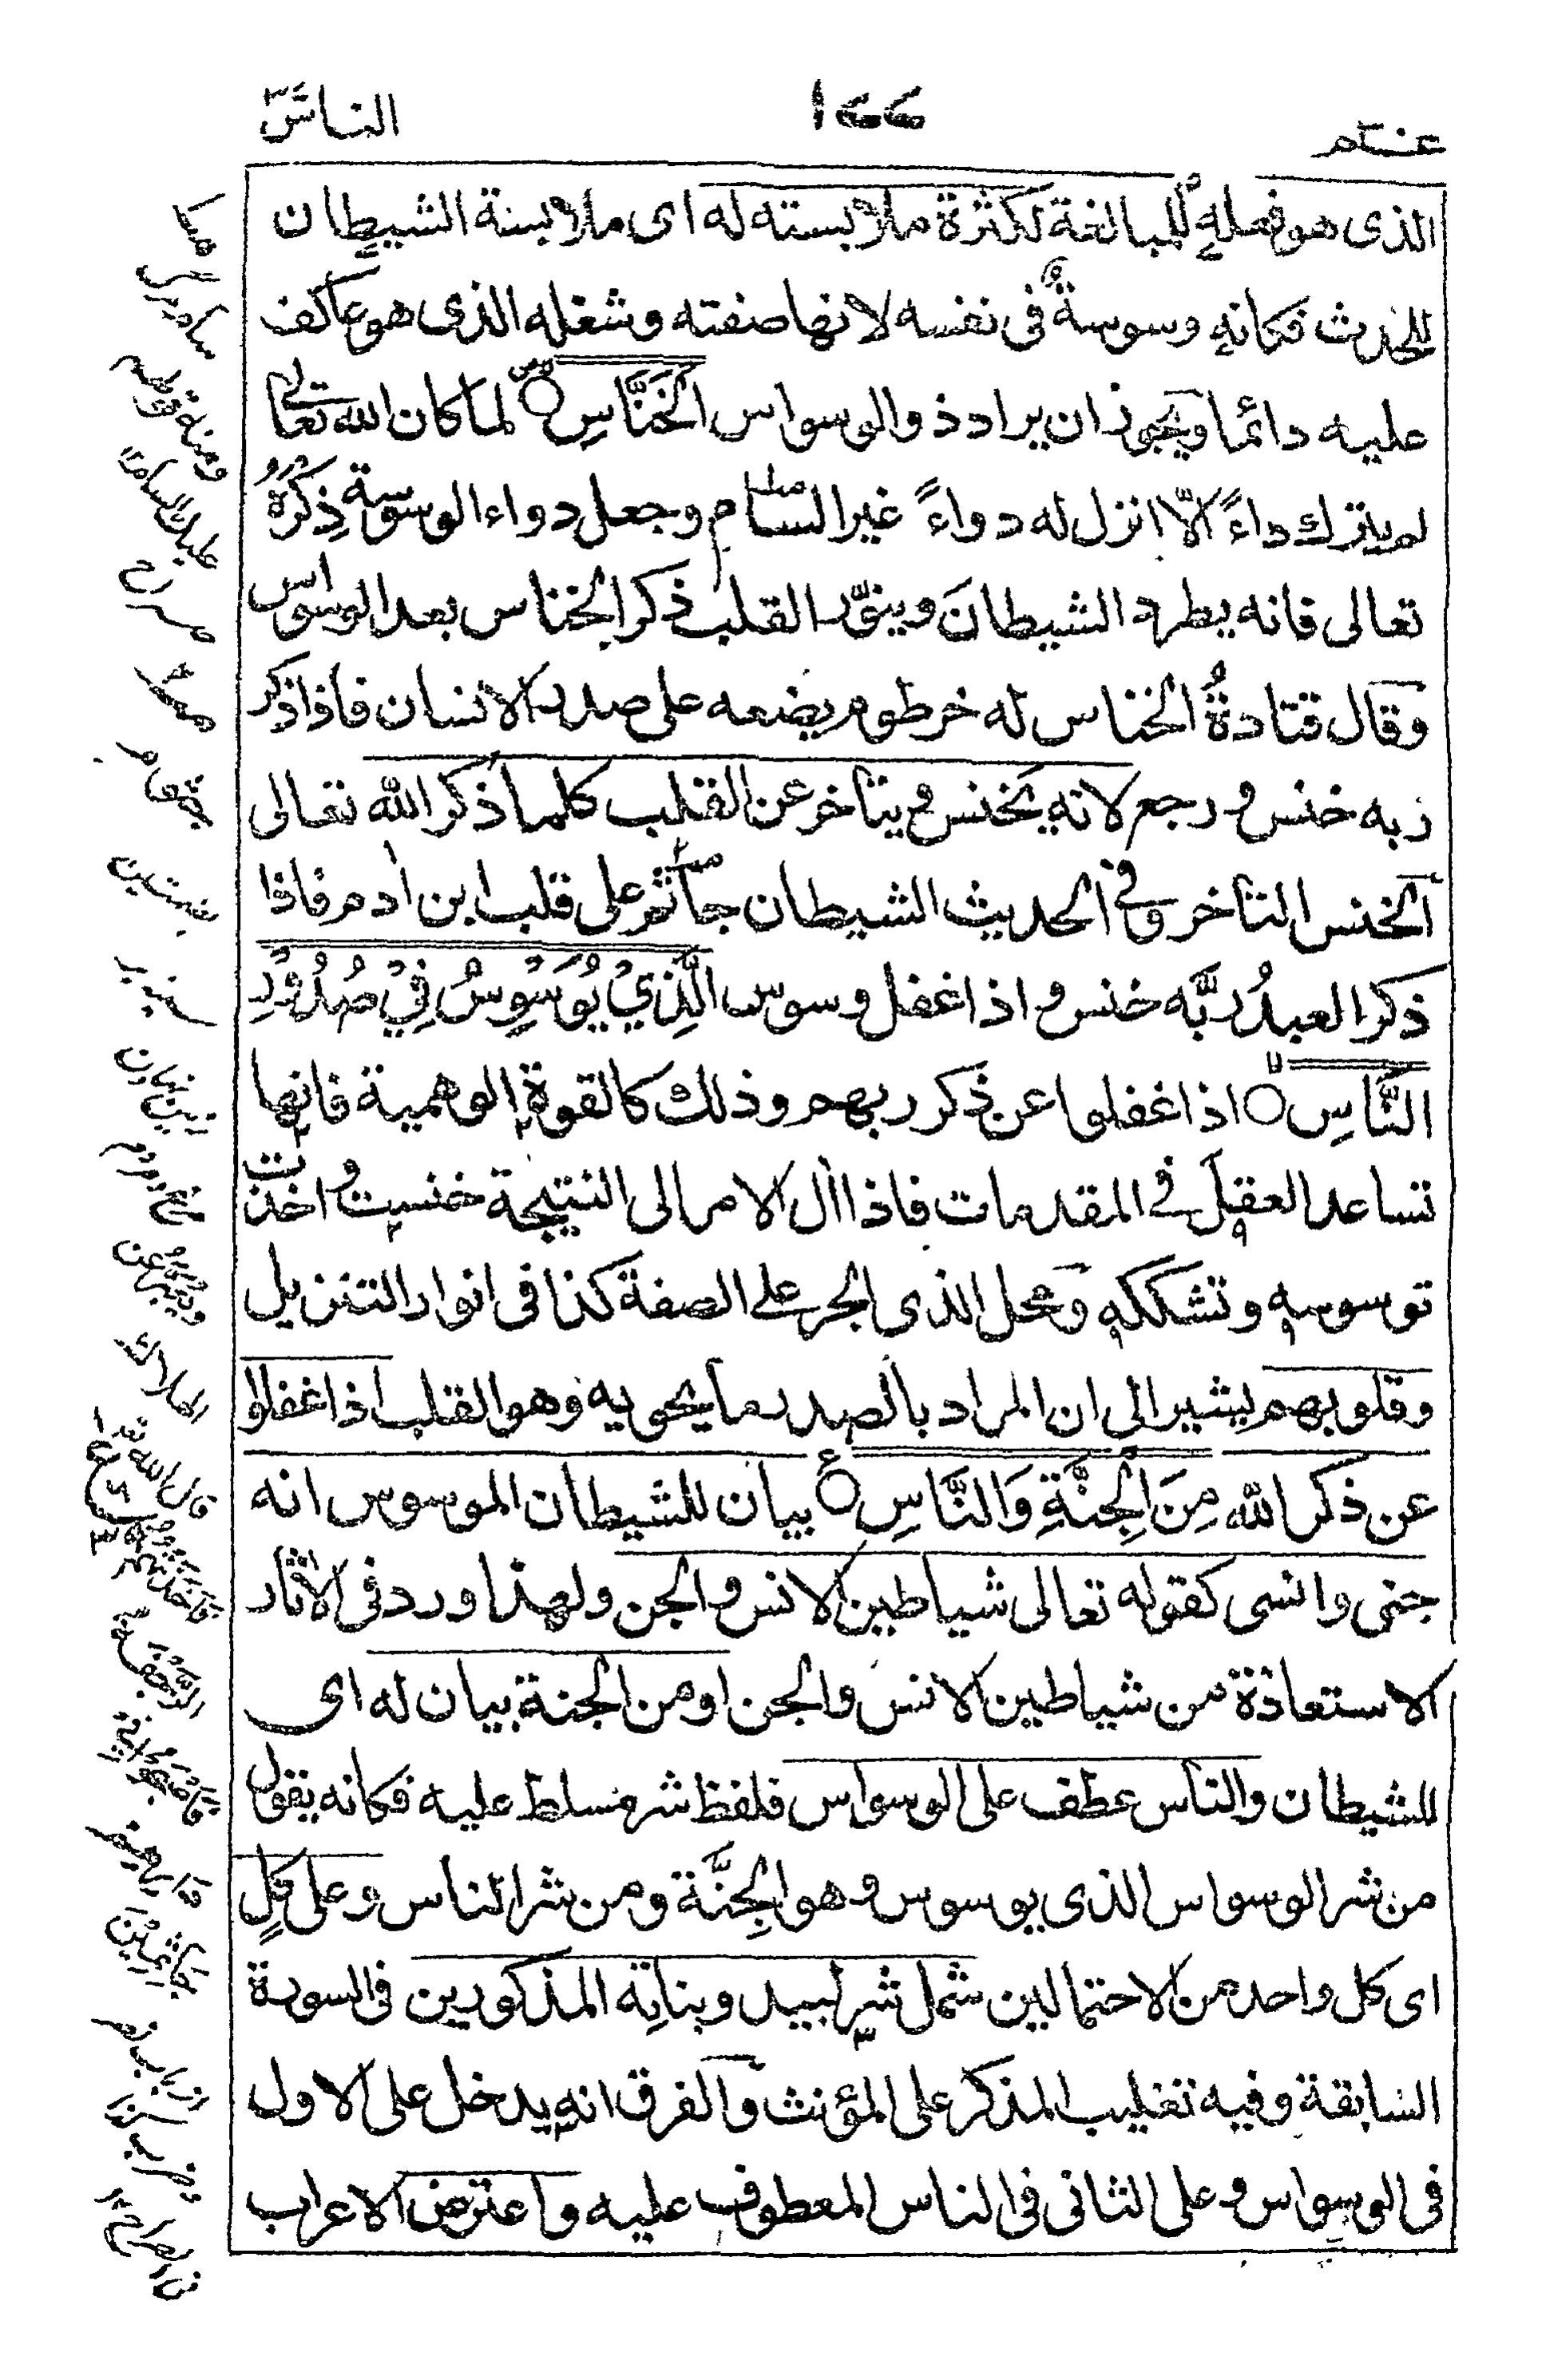 عــم
١٧٧
الناس
الذى هو فعله للمبالغة لكثرة ملابسته له اى ملابسة الشيطان
للحدث فكانه وسوسة فى نفسه لانها صفته وشغله الذى هو عاكف
عليه دائما ويجوز ان يراد ذو الوسواس الْخَنَّاسِ لما كان الله تعالى
لم يترك داءً الّا انزل له دواءً غير السام وجعل دواء الوسوسة ذِكرَهُ
تعالى فانه يطرد الشيطانَ وينوّر القلب ذكر الخناس بعد الوسواس
وقال قتادةُ الخناس له خرطوم يضعه على صدر الانسان فاذا ذكر
ربه خنس و رجع لانه يخنس و يتاخر عن القلب كلما ذكر الله تعالى
الخنس التاخر وفى الحديث الشيطان جاثم على قلب ابن اٰدم فاذا
ذكر العبدُ ربَّه خنس و اذا غفل وسوس الَّذِيْ يُوَسْوِسُ فِيْ صُدُوْرِ
النَّاسِ اذا غفلوا عن ذكر ربهم وذلك كالقوة الوهمية فانها
تساعد العقل فى المقدمات فاذا اٰل الامر الى النتيجة خنست و اخذت
توسوسه وتشككه ومحل الذى الجر على الصفة كذا فى انوار التنزيل
وقلوبهم يشير الى ان المراد بالصدر ما يحويه وهو القلب اذا غفلوا
عن ذكر الله مِنَ الْجِنَّةِ وَالنَّاسِ بيان للشيطان الموسوس انه
جنى وانسى كقوله تعالى شياطين الانس والجن ولهذا ورد فى الاثار
الاستعاذة من شياطين الانس والجن او من الجنة بيان له اى
للشيطان والناس عطف على الوسواس فلفظ شر مسلط عليه فكانه يقول
من شر الوسواس الذى يوسوس و هو الجِنَّة ومن شر الناس وعلى كلٍ
اى كل واحد من الاحتمالين شمل شر لبيد وبناته المذكورين فى السورة
السابقة وفيه تغليب المذكر على المؤنث والفرق انه يدخل على الاول
فى الوسواس و على الثانى فى الناس المعطوف عليه واعترض الاعراب